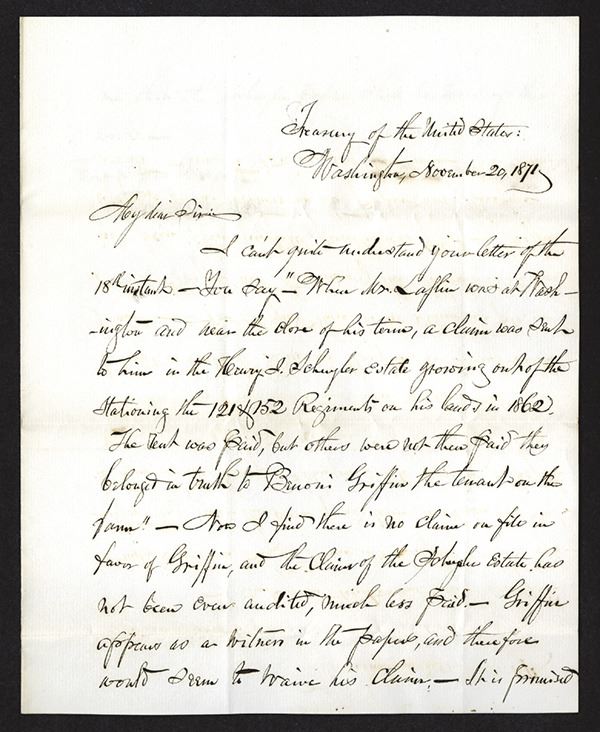 Treasury of the United States:
Washington, November 20, 1871
My dear Sir:
I can't quite understand your letter of the
18th instant — You say — "When Mr. Laflin was at Wash-
-ington and near the close of his term, a Claim was sent
to him in the Henry J. Schuyler Estate growing out of the
Stationing the 121 & 152 Regiments on his lands in 1862.
The rent was paid, but others were not then paid they
belonged in truth to Benoni Griffin the tenant on the
farm" — Now I find there is no claim on file in
favor of Griffin, and the Claim of the Schuyler Estate has
not been even audited, much less paid. — Griffin
appears as a witness in the papers, and therefore
would seem to waive his Claim. — It is promised